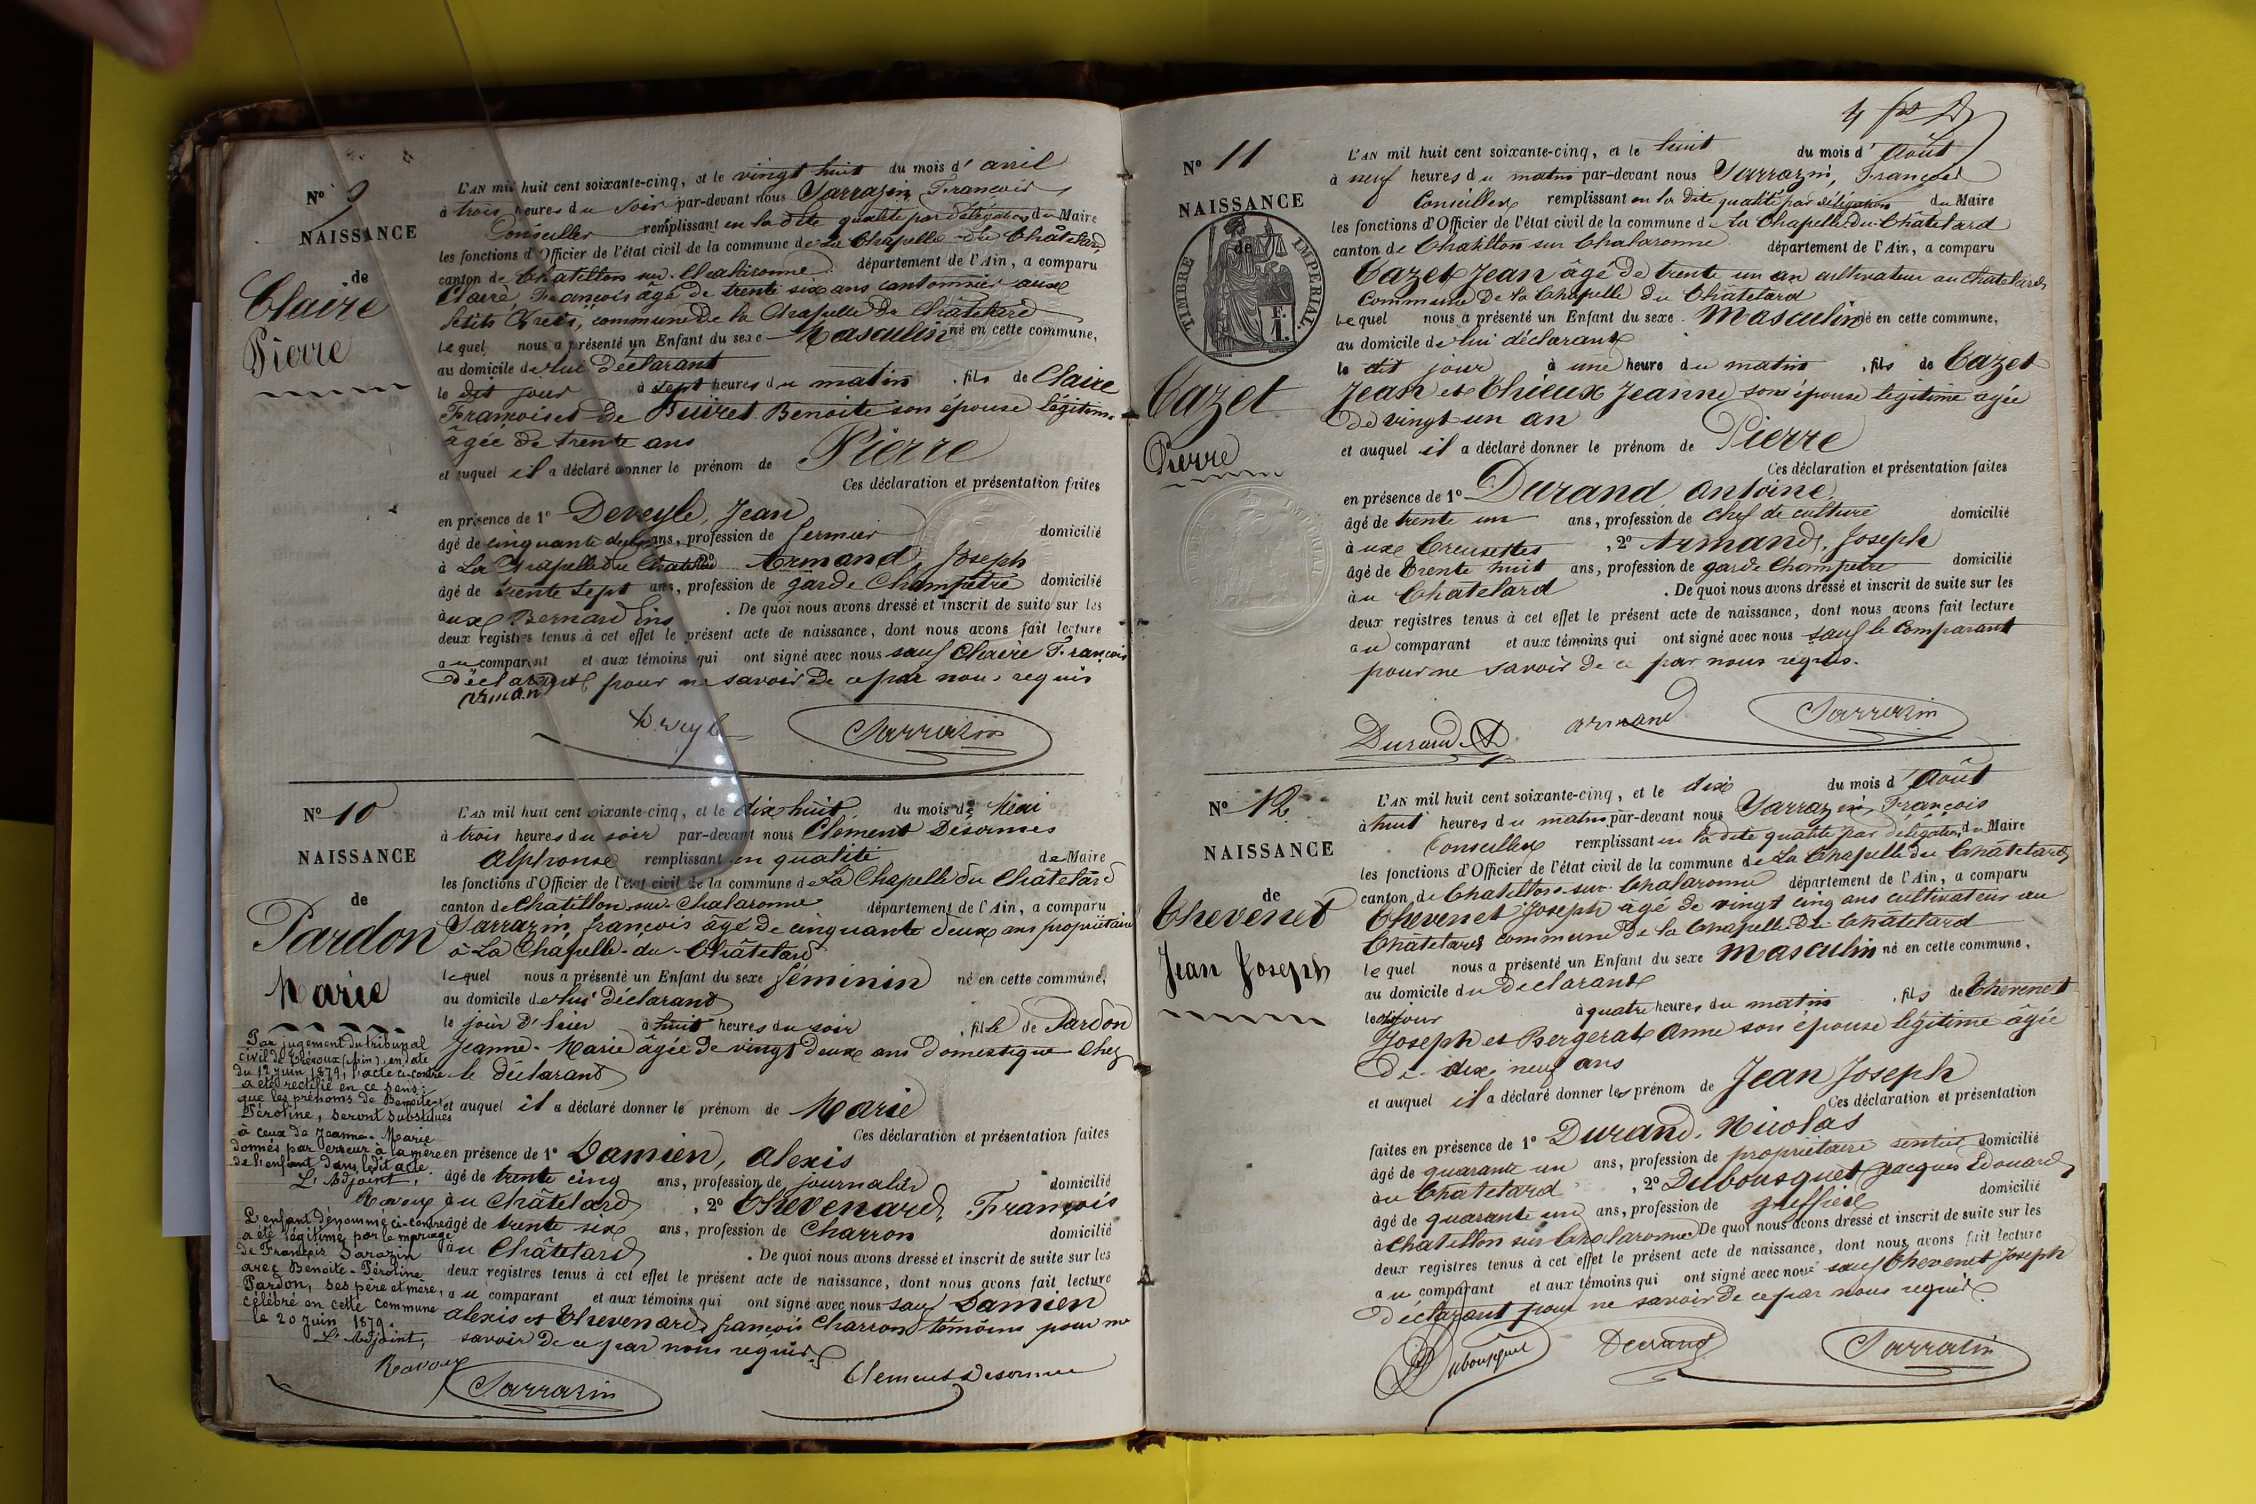 N° 9
NAISSANCE
de
Claire
Pierre
L'AN mil huit cent soixante-cinq, et le vingt huit du mois d'avril
à trois heures du soir par-devant nous Sarrazin, François
Conseiller remplissant en la dite qualité par délégation du Maire
les fonctions d'Officier de l'état civil de la commune de La Chapelle-du-Châtelard
canton de Chatillon sur Chalaronne département de l'Ain, a comparu
Claire, François âgé de trente six ans cantonnier aux
petits commune de la Chapelle du Châtelard
lequel nous a présenté un Enfant du sexe Masculin né en cette commune,
au domicile de lui déclarant
le dit jour à sept heures du matin, fils de Claire
François et de Buiret Benoite son épouse légitime
âgée de trente ans
et auquel il a déclaré donner le prénom de Pierre
Ces déclaration et présentation faites
en présence de 1° Deveyle, Jean
âgé de cinquante deux ans, profession de fermier domicilié
à La Chapelle du Chatelard 2° Armand, Joseph
âgé de trente sept ans, profession de garde Champêtre domicilié
aux Bernardins. De quoi nous avons dressé et inscrit de suite sur les
deux registres tenus à cet effet le présent acte de naissance, dont nous avons fait lecture
au comparant et aux témoins qui ont signé avec nous sauf Claire François
déclarant pour ne savoir de ce par nous requis
arman
Deveyle Sarrazin
N° 10
NAISSANCE
de
Pardon
Marie
L'AN mil huit cent soixante-cinq, et le dix huit du mois de Mai
à trois heures du soir par-devant nous Clément Désormes
Alphonse remplissant en qualité de Maire
les fonctions d'Officier de l'état civil de la commune de La Chapelle du Châtelard
canton de Châtillon-sur-Chalaronne département de l'Ain, a comparu
Sarrazin, françois âgé de cinquante deux ans propriétaire
à La Chapelle-du-Châtelard
lequel nous a présenté un Enfant du sexe féminin né en cette commune,
au domicile de lui déclarant
le jour d'hier à huit heures du soir, fille de Pardon
Jeanne-Marie âgée de vingt deux ans domestique chez
le déclarant
et auquel il a déclaré donner le prénom de Marie
Ces déclaration et présentation faites
en présence de 1° Damien, Alexis
âgé de trente cinq ans, profession de journalier domicilié
au Châtelard, 2° Thevenard, François
âgé de trente six ans, profession de Charron domicilié
au Châtelard. De quoi nous avons dressé et inscrit de suite sur les
deux registres tenus à cet effet le présent acte de naissance, dont nous avons fait lecture
au comparant et aux témoins qui ont signé avec nous sauf Damien
alexis et Thevenard françois Charron témoins pour ne
savoir de ce par nous requis
Sarrazin Clément Désormes
Par jugement du tribunal
civil de Trévoux (Ain), en date
du 12 juin 1879, l'acte ci-contre
a été rectifié en ce sens:
que les prénoms de Benoite-
Péroline, seront substitués
à ceux de Jeanne-Marie
donnés par erreur à la mère
de l'enfant dans ledit acte.
L'Adjoint,
Ravoux
L'enfant dénommé ci-contre
a été légitimé par le mariage
de François Sarazin
avec Benoite-Péroline
Pardon, ses père et mère,
célébré en cette commune
le 20 juin 1879.
L'Adjoint,
Ravoux
N° 11
NAISSANCE
de
TIMBRE IMPÉRIAL
1 F.
Cazet
Pierre
L'AN mil huit cent soixante-cinq, et le huit du mois d'Août
à neuf heures du matin par-devant nous Sarrazin, François
Conseiller remplissant en la dite qualité par délégation du Maire
les fonctions d'Officier de l'état civil de la commune de La Chapelle-du-Châtelard
canton de Chatillon sur Chalaronne département de l'Ain, a comparu
Cazet Jean âgé de trente un an cultivateur au Chatelard
Commune de la Chapelle du Châtelard
lequel nous a présenté un Enfant du sexe Masculin né en cette commune,
au domicile de lui déclarant
le dit jour à une heure du matin, fils de Cazet
Jean et Thieux Jeanne son épouse légitime âgée
de vingt un an
et auquel il a déclaré donner le prénom de Pierre
Ces déclaration et présentation faites
en présence de 1° Durand Antoine
âgé de trente un ans, profession de chef de culture domicilié
aux Creusettes, 2° Armand, Joseph
âgé de trente huit ans, profession de garde Champêtre domicilié
au Chatelard. De quoi nous avons dressé et inscrit de suite sur les
deux registres tenus à cet effet le présent acte de naissance, dont nous avons fait lecture
au comparant et aux témoins qui ont signé avec nous sauf le Comparant
pour ne savoir de ce par nous requis.
Durand A armand Sarrazin
N° 12
NAISSANCE
de
Thevenet
Jean Joseph
L'AN mil huit cent soixante-cinq, et le dix du mois d'Août
à huit heures du matin par-devant nous Sarrazin, François
Conseiller remplissant en la dite qualité par délégation du Maire
les fonctions d'Officier de l'état civil de la commune de La Chapelle du Châtelard
canton de Chatillon-sur-Chalaronne département de l'Ain, a comparu
Thevenet Joseph âgé de vingt cinq ans cultivateur au
Châtelard commune de la Chapelle-du-Châtelard
lequel nous a présenté un Enfant du sexe Masculin né en cette commune,
au domicile du déclarant
le dit jour à quatre heures du matin, fils de Thevenet
Joseph et Bergerat Anne son épouse légitime âgée
de dix neuf ans
et auquel il a déclaré donner les prénom de Jean Joseph
Ces déclaration et présentation
faites en présence de 1° Durand, Nicolas
âgé de quarante un ans, profession de propriétaire rentier domicilié
au Chatelard, 2° Dubousquet Jacques Edouard
âgé de quarante un ans, profession de greffier domicilié
à Chatillon sur Chalaronne De quoi nous avons dressé et inscrit de suite sur les
deux registres tenus à cet effet le présent acte de naissance, dont nous avons fait lecture
au comparant et aux témoins qui ont signé avec nous sauf Thevenet Joseph
déclarant pour ne savoir de ce par nous requis
Dubousquet Durand Sarrazin